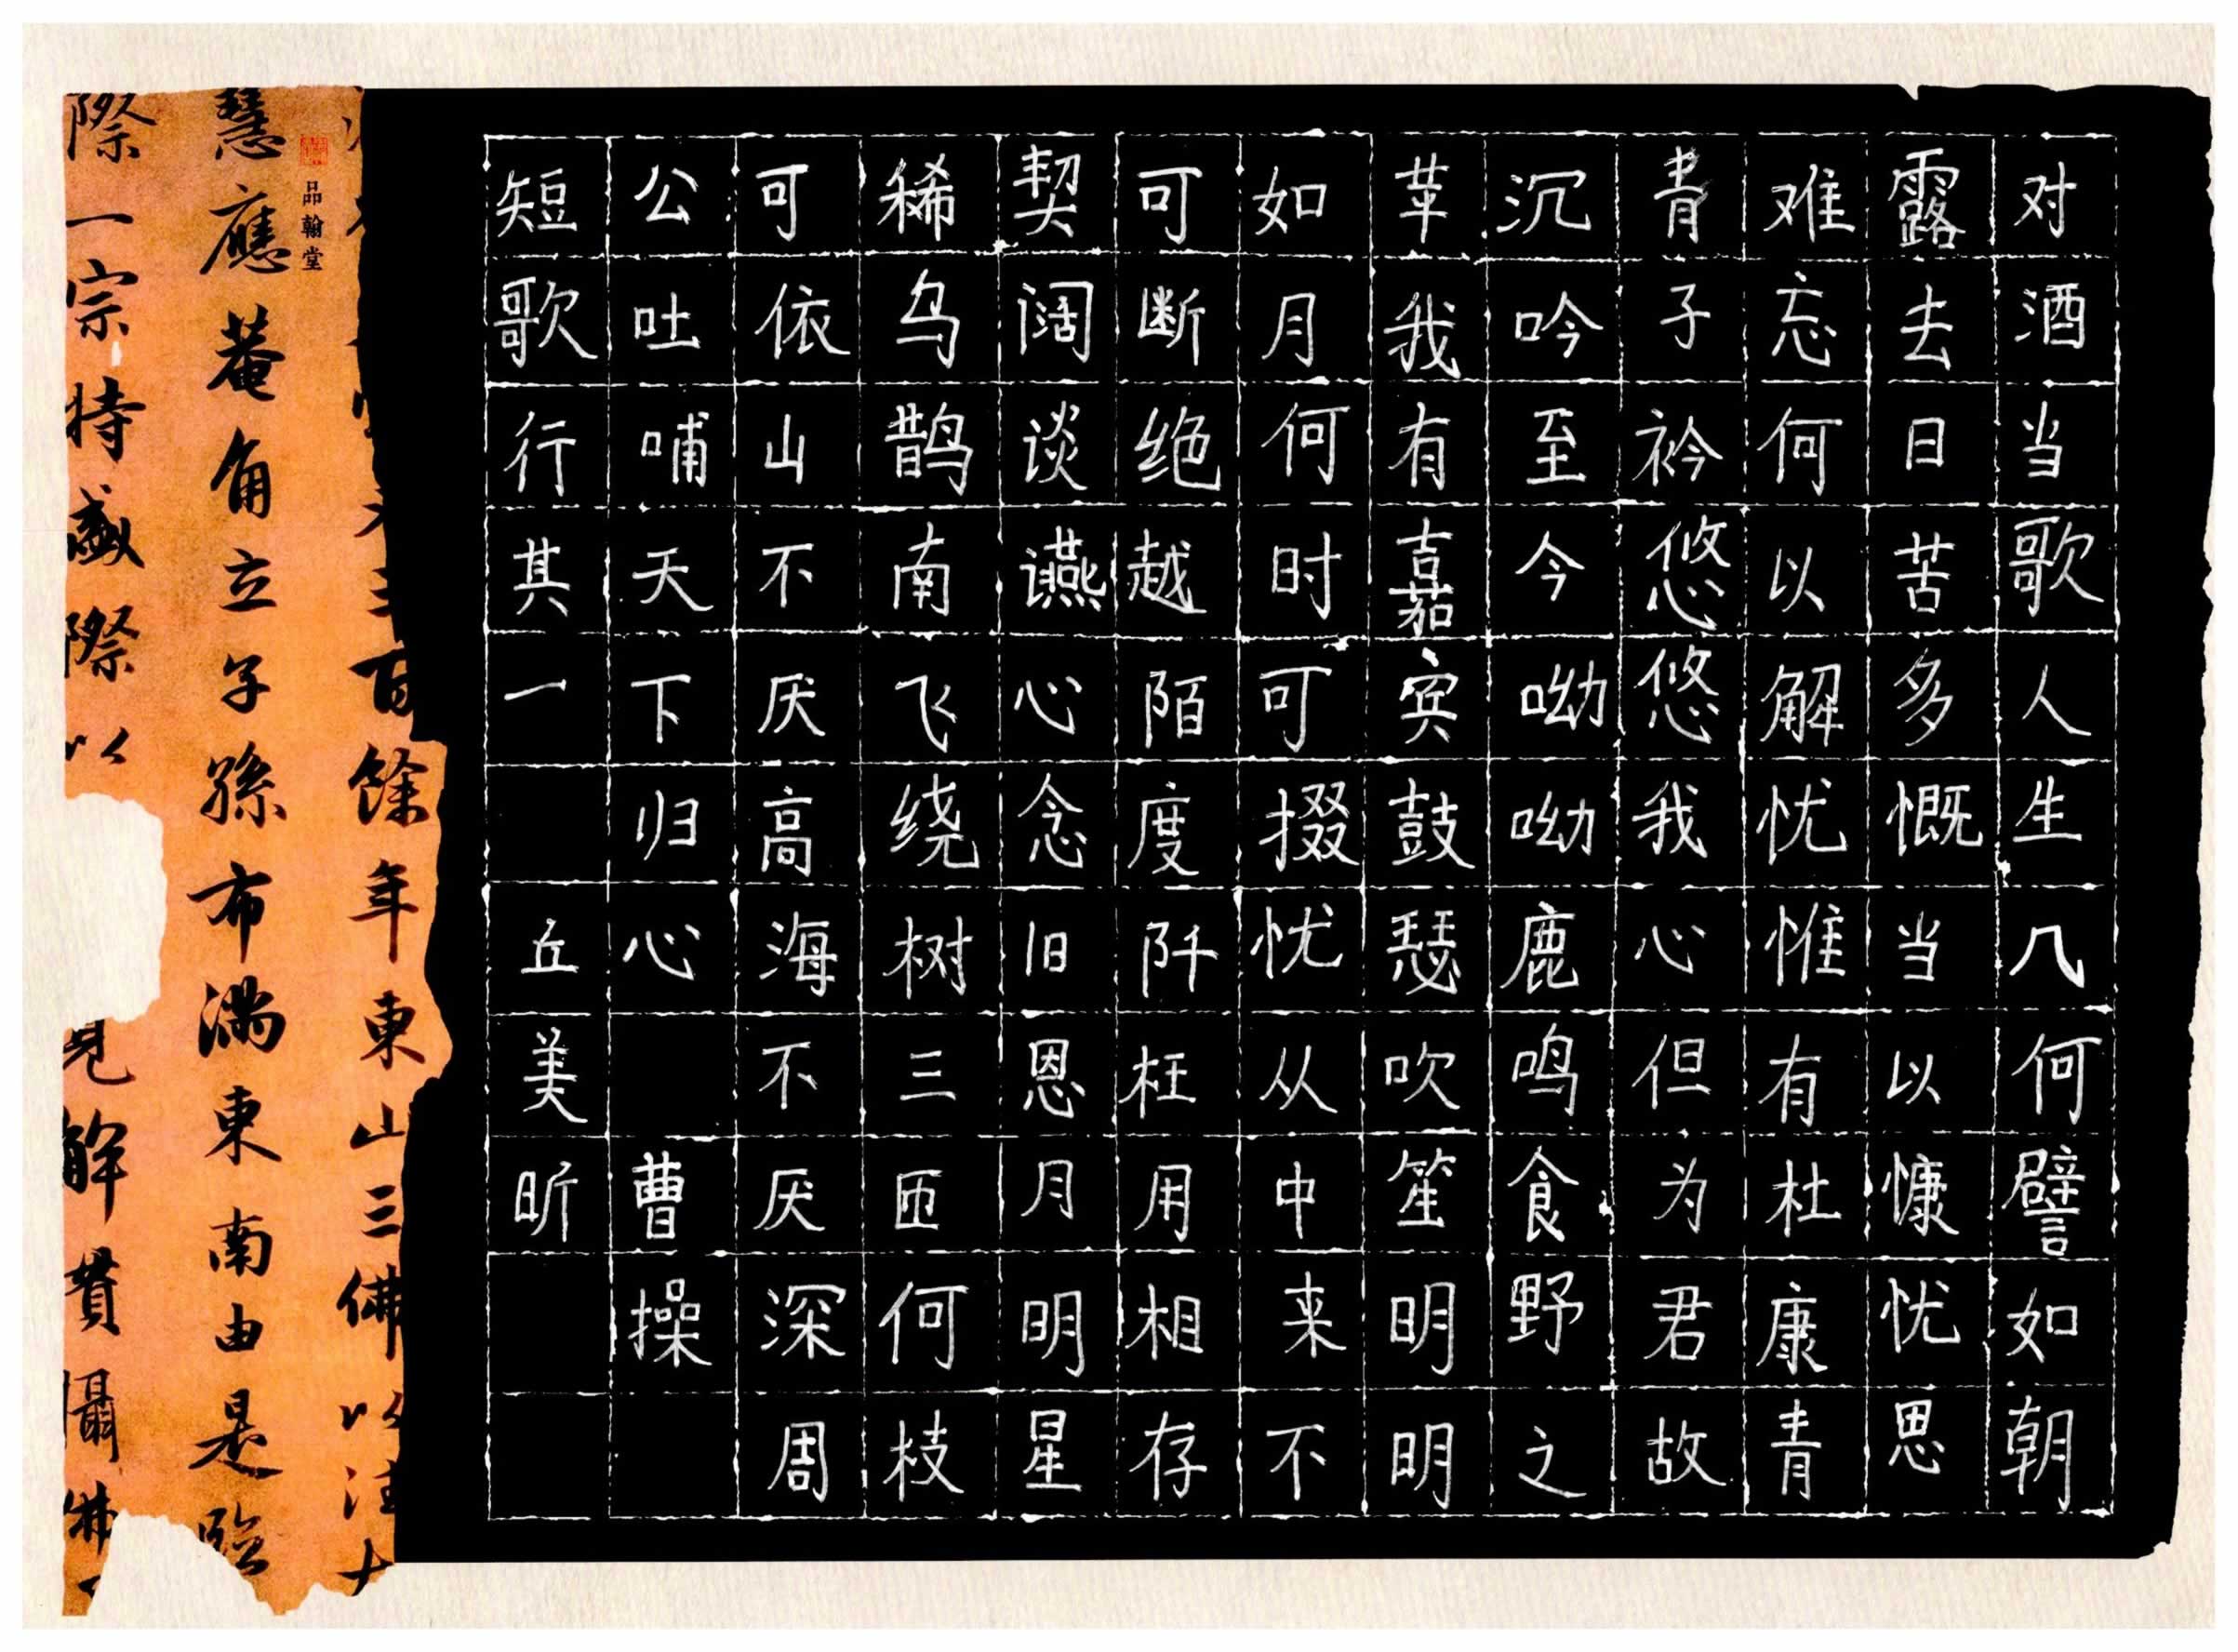 对酒当歌人生几何譬如朝
露去日苦多慨当以慷忧思
难忘何以解忧惟有杜康青
青子衿悠悠我心但为君故
沉吟至今呦呦鹿鸣食野之
苹我有嘉宾鼓瑟吹笙明明
如月何时可掇忧从中来不
可断绝越陌度阡枉用相存
契阔谈䜩心念旧恩月明星
稀乌鹊南飞绕树三匝何枝
可依山不厌高海不厌深周
公吐哺天下归心 曹操
短歌行其一 丘美昕
百餘年東山三佛以法
品翰堂
慧應菴角立子孫布满東南由是臨
際一宗特盛際以 見解貫攝佛